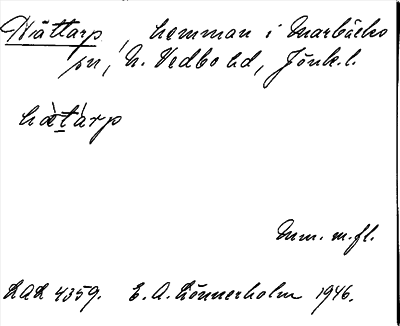 Hättarp, hemman i Marbäcks
sn, N. Vedbo hd, Jönk.l.
hæ̀t̲àrp
Mm. m.fl.
LAL 4359. E. A. Lönnerholm 1946.